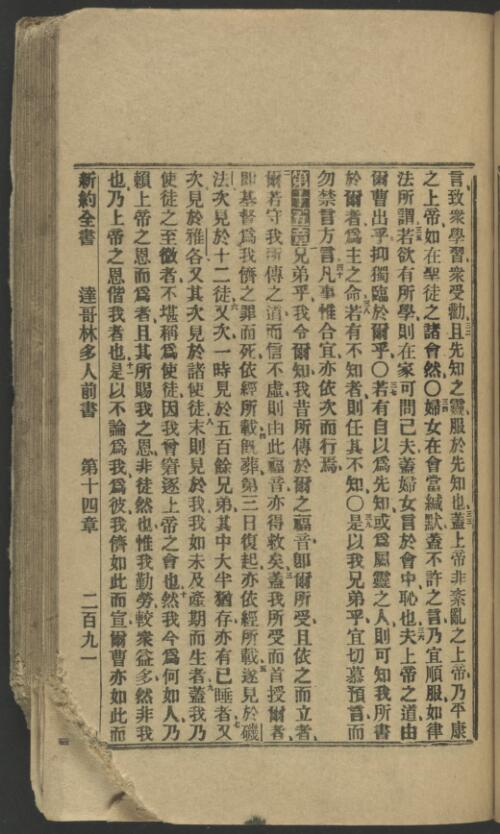 言致衆學習衆受勸且先知之靈服於先知也蓋上帝非紊亂之上帝乃平康
之上帝如在聖徒之諸會然〇婦女在會當緘默蓋不許之言乃宜順服如律
法所謂若欲有所學則在家可問己夫蓋婦女言於會中恥也夫上帝之道由
爾曹出乎抑獨臨於爾乎〇若有自以爲先知或爲屬靈之人則可知我所書
於爾者爲主之命若有不知者則任其不知〇是以我兄弟乎宜切慕預言而
勿禁言方言凡事惟合宜亦依次而行焉
第十五章兄弟乎我令爾知我昔所傳於爾之福音卽爾所受且依之而立者
爾若守我所傳之道而信不虛則由此福音亦得救矣蓋我所受而首授爾者
卽基督爲我儕之罪而死依經所載旣葬第三日復起亦依經所載遂見於磯
法次見於十二徒又次一時見於五百餘兄弟其中大半猶存亦有已睡者又
次見於雅各又其次見於諸使徒末則見於我我如未及產期而生者蓋我乃
使徒之至微者不堪稱爲使徒因我曾窘逐上帝之會也然我今爲何如人乃
賴上帝之恩而爲者且其所賜我之恩非徒然也惟我勤勞較衆益多然非我
也乃上帝之恩偕我者也是以不論爲我爲彼我儕如此而宣爾曹亦如此而
新約全書 達哥林多人前書 第十四章 二百九一